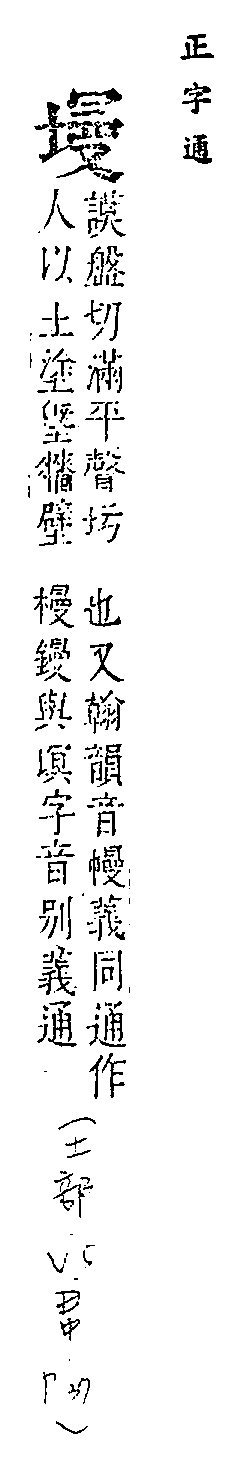 正字通
墁
謨盤切滿平聲圬
人以土塗堊牆壁
也又翰韻音幔義同通作
槾鏝與塓字音別義通
(土部